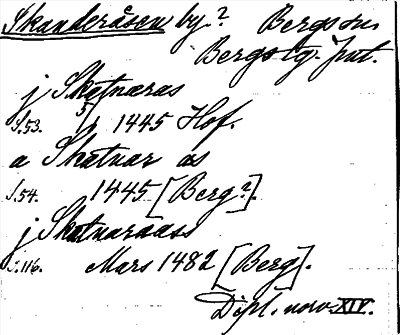 Skanderåsen by? Bergs sn
Bergs tg. Jmt.
j Skatnæras
S.53. 5/1 1445 Hof.
a Skatnar as
S.54. 1445 [Berg?].
j Skatnaraass
S.116. Mars 1482 [Berg].
Dipl. norv. XIV.